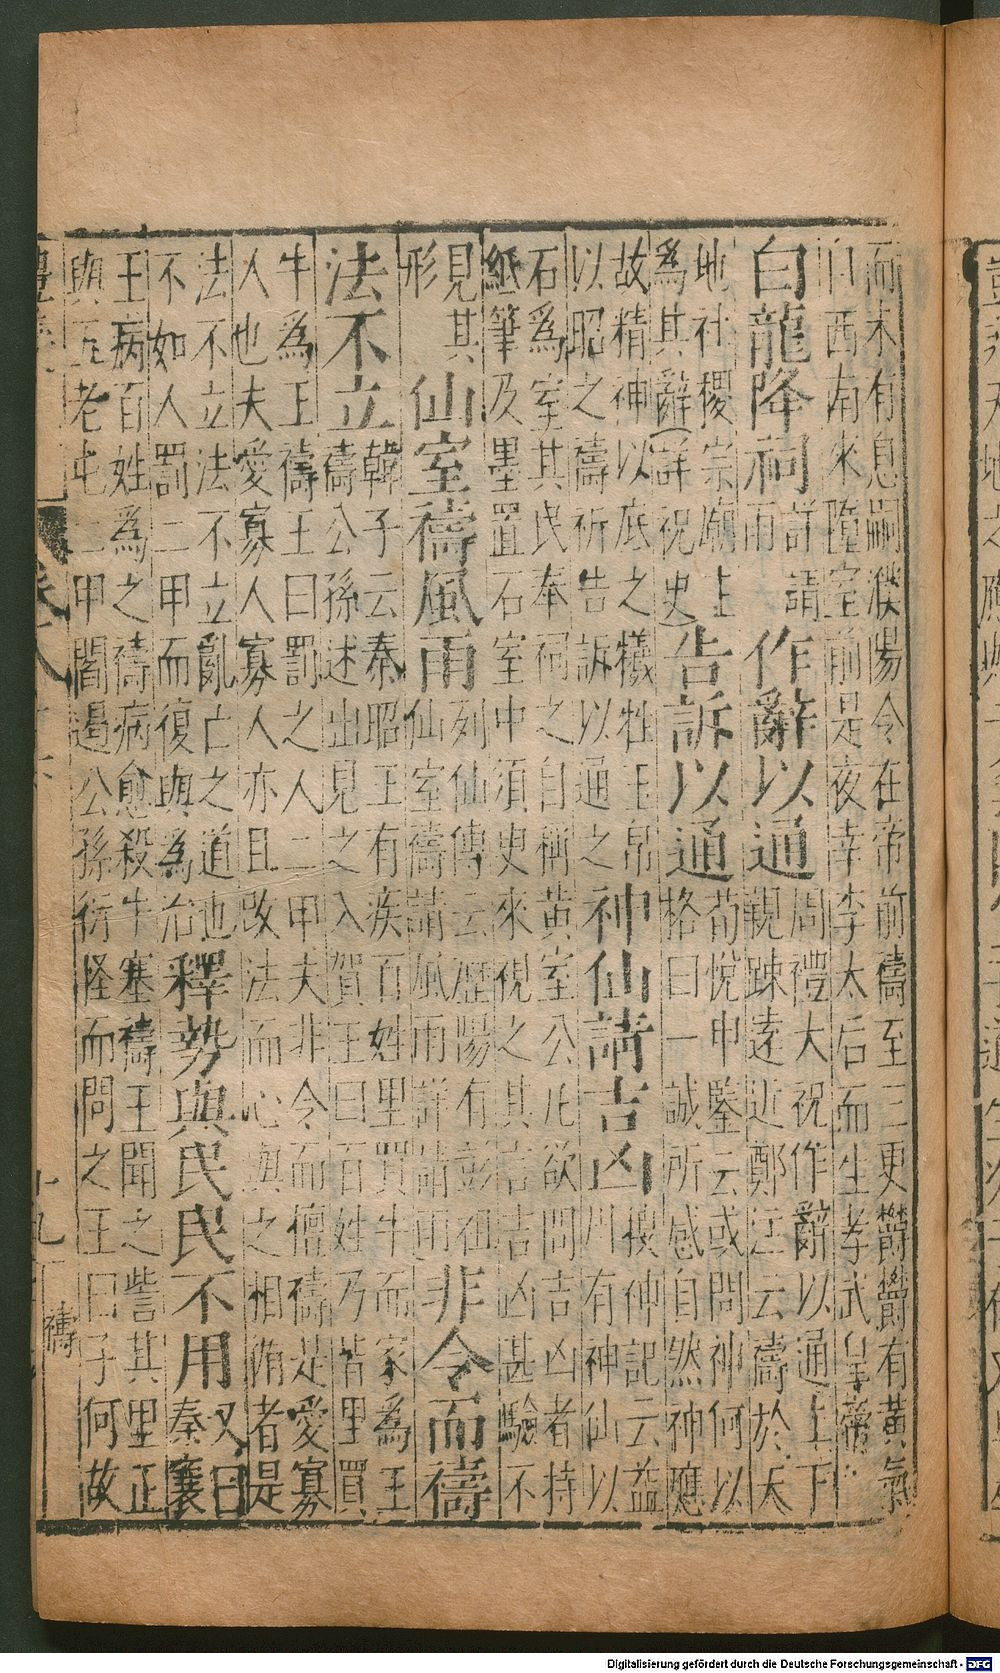 而未有息嗣濮陽令在帝前禱至三更欝欝有黃氣
自西南來墮室前是夜幸李太后而生孝武皇帝
白龍降祠
詳請
雨
作辭以通
周禮大祝作辭以通上下
親踈遠近鄭注云禱於天
地社稷宗廟上
為其辭(詳祝史)
告訴以通
荀悅申鑒云或問神何以
格曰一誠所感自然神應
故精神以底之犧牲玉帛
以昭之禱祈告訴以通之
神仙請吉凶
搜神記云益
州有神仙以
石為室其民奉祠之自稱黃室公凡欲問吉凶者持
紙筆及墨置石室中須臾來視之其言吉凶甚驗不
見其
形
仙室禱風雨
列仙傳云歷陽有彭祖
仙室禱請風雨詳請雨
非令而禱
法不立
韓子云秦昭王有疾百姓里買牛而家為王
禱公孫述出見之入賀王曰百姓乃皆里買
牛為王禱王曰罰之人二甲夫非令而擅禱是愛寡
人也夫愛寡人寡人亦且改法而心與之相循者是
法不立法不立亂亡之道也
不如人罰二甲而復與為治
釋勢與民民不用
又曰
秦襄
王病百姓為之禱病愈殺牛塞禱王聞之訾其里正
與五老屯二甲閻遏公孫衍怪而問之王曰子何故
十九
禱
Digitalisierung gefördert durch die Deutsche Forschungsgemeinschaft - DFG